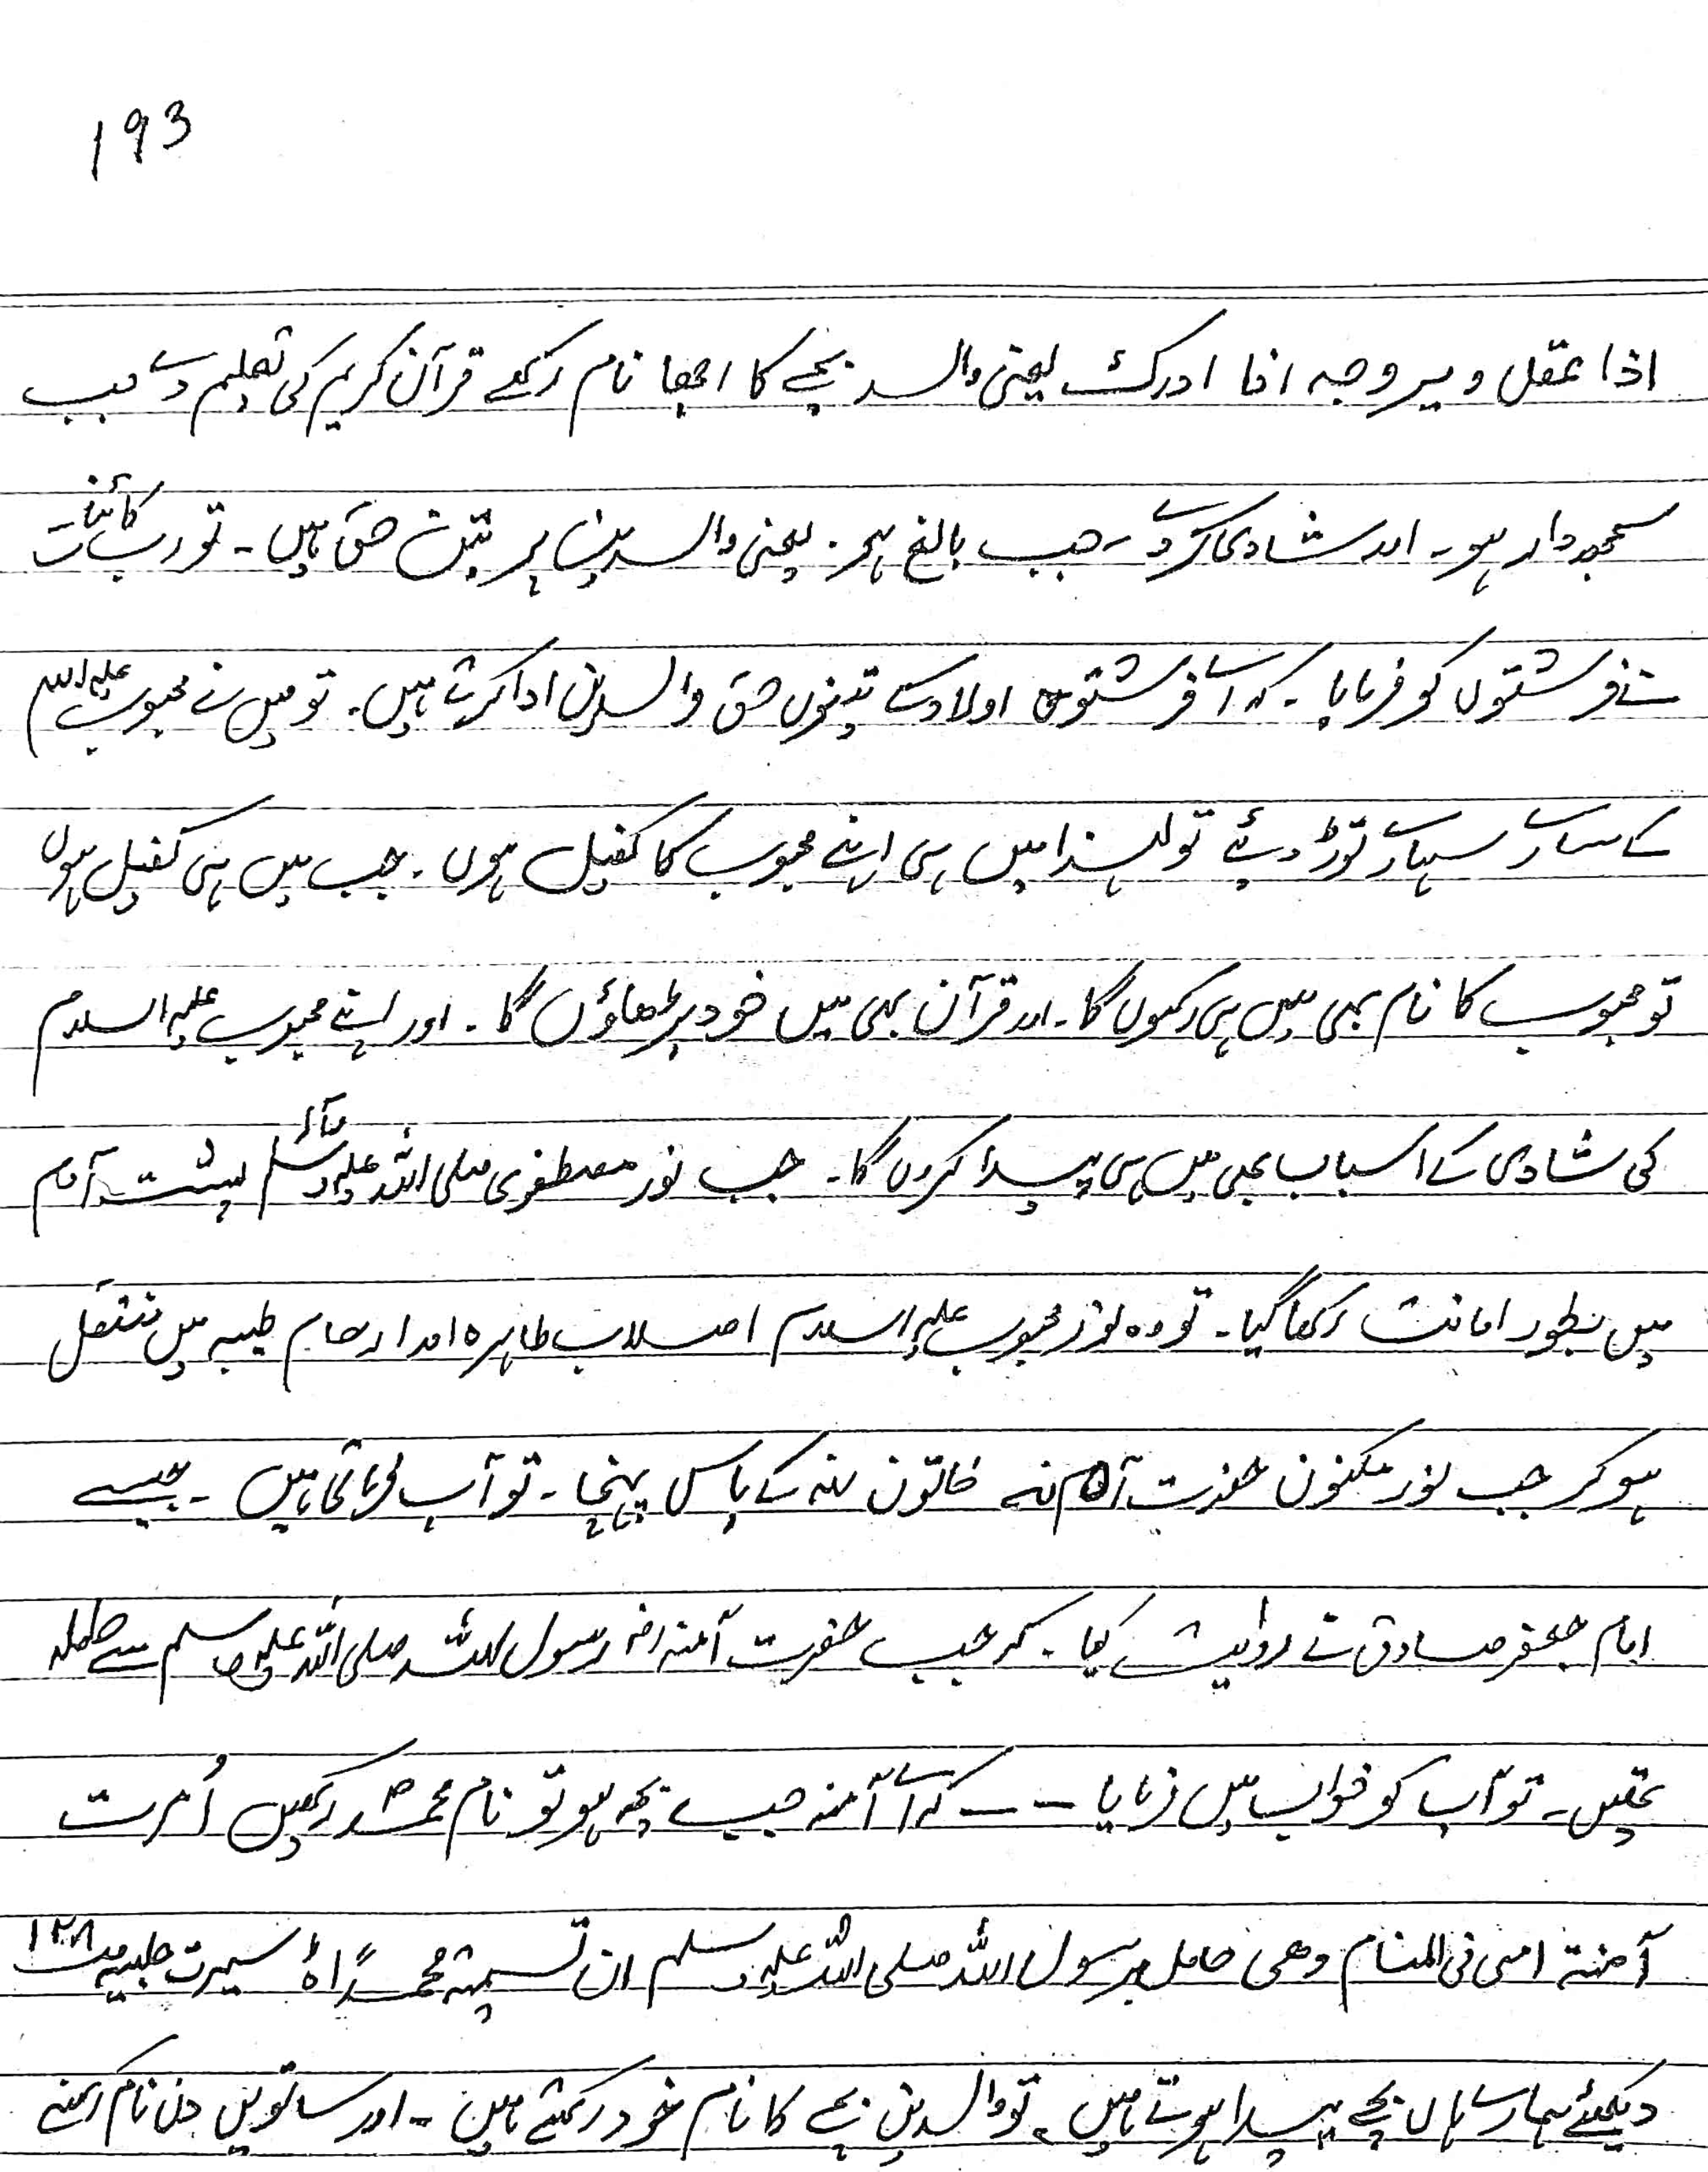 193
اذا عقل و یزوجہ اذا ادرک یعنی والد بچے کا اچھا نام رکھے قرآن کریم کی تعلیم دے جب
سمجھدار ہو۔ اور شادی کردے جب بالغ ہو۔ یعنی والدین پر تین حق ہیں۔ تو رب کائنات
نے فرشتوں کو فرمایا۔ کہ اے فرشتوں اولاد کے تینوں حق والدین ادا کرتے ہیں۔ تو میں نے محبوب علیہ السلام
کے سارے سہارے توڑ دیئے تو لہذا میں ہی اپنے محبوب کا کفیل ہوں۔ جب میں ہی کفیل ہوں
تو محبوب کا نام بھی میں ہی رکھوں گا۔ اور قرآن بھی میں خود پڑھاؤں گا۔ اور اپنے محبوب علیہ السلام
کی شادی کے اسباب بھی میں ہی پیدا کروں گا۔ جب نور مصطفوی صلی اللہ علیہ وسلم پشت آدم
میں بطور امانت رکھا گیا۔ تو وہ نور محبوب علیہ السلام اصلاب طاہرہ اور ارحام طیبہ میں منتقل
ہو کر جب نور مکنون حضرت آمنہ خاتون کے پاس پہنچا۔ تو آپ فرماتی ہیں۔ جیسے
امام جعفر صادق نے روایت کیا۔ کہ جب حضرت آمنہ رضہ رسول اللہ صلی اللہ علیہ وسلم سے حاملہ
تھیں۔ تو آپ کو خواب میں فرمایا -- کہ اے آمنہ جب بچہ ہو تو نام محمد رکھیں اُمرت
آمنۃ امی فی المنام وھی حامل برسول اللہ صلی اللہ علیہ وسلم ان تسمیہ محمداً اھ سیرت حلبیہ ص ۱۲۸
دیکھئے ہمارے ہاں بچے پیدا ہوتے ہیں۔ تو والدین بچے کا نام خود رکھتے ہیں۔ اور ساتویں دن نام رکھنے